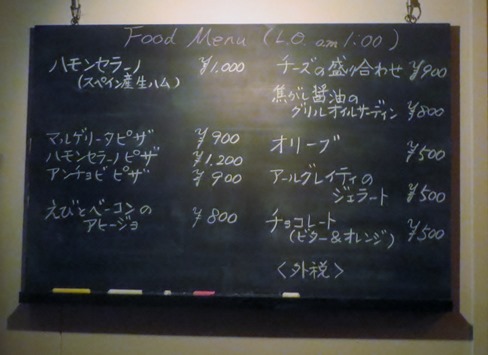 Food Menu (L.O. am 1:00)
ハモンセラーノ ¥1,000
(スペイン産生ハム)
マルゲリータピザ ¥900
ハモンセラーノピザ ¥1,200
アンチョビピザ ¥900
えびとベーコンの
アヒージョ ¥800
チーズの盛り合わせ ¥900
焦がし醤油の
グリルオイルサーディン ¥800
オリーブ ¥500
アールグレイティの
ジェラート ¥500
チョコレート
(ビター&オレンジ) ¥500
〈外税〉